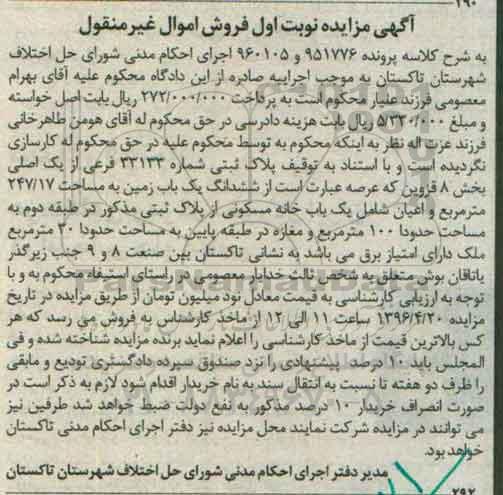 ۲۹۰
آگهی مزایده نوبت اول فروش اموال غیرمنقول
به شرح کلاسه پرونده ۹۵۱۷۷۶ و ۹۶۰۱۰۵ اجرای احکام مدنی شورای حل اختلاف
شهرستان تاکستان به موجب اجراییه صادره از این دادگاه محکوم علیه آقای بهرام
معصومی فرزند علییار محکوم است به پرداخت ۲۷۲/۰۰۰/۰۰۰ ریال بابت اصل خواسته
و مبلغ ۵/۳۳۰/۰۰۰ ریال بابت هزینه دادرسی در حق محکوم له آقای هومن طاهرخانی
فرزند عزت اله نظر به اینکه محکوم به توسط محکوم علیه در حق محکوم له کارسازی
نگردیده است و با استناد به توقیف پلاک ثبتی شماره ۳۳۱۳۳ فرعی از یک اصلی
بخش ۸ قزوین که عرصه عبارت است از ششدانگ یک باب زمین به مساحت ۲۴۷/۱۷
مترمربع و اعیان شامل یک باب خانه مسکونی از پلاک ثبتی مذکور در طبقه دوم به
مساحت حدودا ۱۰۰ مترمربع و مغازه در طبقه پایین به مساحت حدودا ۳۰ مترمربع
ملک دارای امتیاز برق می باشد به نشانی تاکستان بین صنعت ۸ و ۹ جنب زیرگذر
یاتاقان بوش متعلق به شخص ثالث خدایار معصومی در راستای استیفاء محکوم به و با
توجه به ارزیابی کارشناسی به قیمت معادل نود میلیون تومان از طریق مزایده در تاریخ
مزایده ۱۳۹۶/۴/۲۰ ساعت ۱۱ الی ۱۲ از ماخذ کارشناس به فروش می رسد که هر
کس بالاترین قیمت از ماخذ کارشناسی را اعلام نماید برنده مزایده شناخته شده و فی
المجلس باید ۱۰ درصد پیشنهادی را نزد صندوق سپرده دادگستری تودیع و مابقی
را ظرف دو هفته تا نسبت به انتقال سند به نام خریدار اقدام شود لازم به ذکر است در
صورت انصراف خریدار ۱۰ درصد مذکور به نفع دولت ضبط خواهد شد طرفین نیز
می توانند در مزایده شرکت نمایند محل مزایده نیز دفتر اجرای احکام مدنی تاکستان
خواهد بود.
مدیر دفتر اجرای احکام مدنی شورای حل اختلاف شهرستان تاکستان
۲۹۲